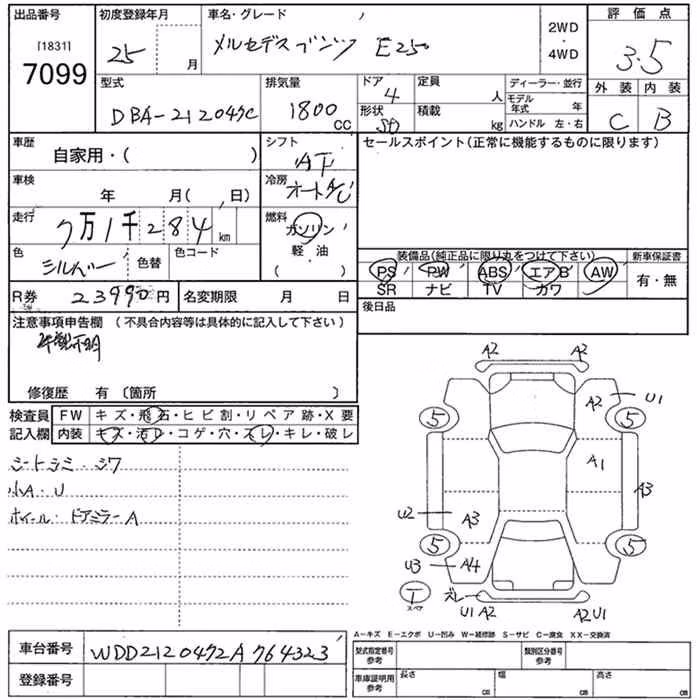 出品番号
[1831]
7099
初度登録年月
25 年 月
車名・グレード
メルセデスベンツ E250
2WD
・
4WD
評価点
3.5
外装 内装
C B
型式
DBA-212047C
排気量
1800 CC
ドア
4
定員
人
形状
SD
積載
kg
ディーラー・並行
モデル年式 年
ハンドル 左・右
車歴
自家用・( )
シフト
AT
セールスポイント(正常に機能するものに限ります)
車検
年 月( 日)
冷房
オートA/C
走行
7万1千284km
燃料
ガソリン
軽・油
( )
色
シルバー
色替
色コード
装備品(純正品に限り丸をつけて下さい)
PS PW ABS エアB AW
SR ナビ TV カワ
新車保証書
有・無
R券 23990円
名変期限 月 日
後日品
注意事項申告欄 (不具合内容等は具体的に記入して下さい)
修復歴 有 〔箇所 〕
検査員
記入欄
FW キズ・飛石・ヒビ割・リペア跡・X要
内装 キズ・汚レ・コゲ・穴・スレ・キレ・破レ
シートシミ・シワ
小A・U
ホイール・ドアミラーA
A2 A2
A2 U1
5 5
A1
A3
U2 A3
5 5
U3 A4
T
スペア
ズレ
U1 A2 A2 U1
A-キズ E-エクボ U-凹み W-補修跡 S-サビ C-腐食 XX-交換済
車台番号 WDD2120472A764323
登録番号
型式指定番号
参考
類別区分番号
参考
車庫証明用
参考
長さ cm 幅 cm 高さ cm